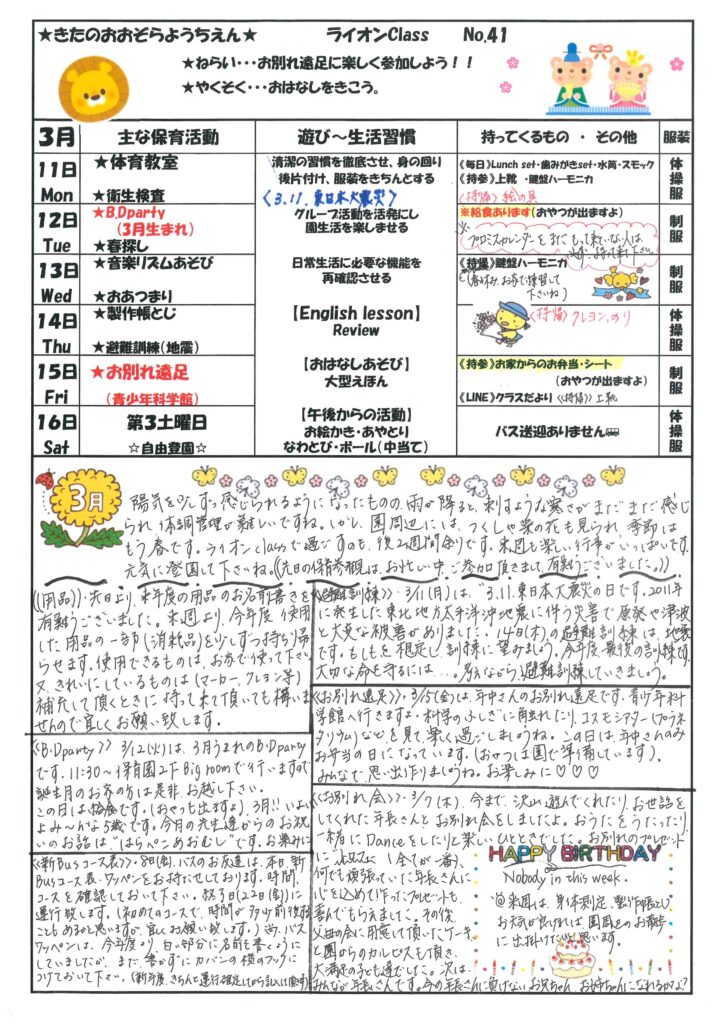 ★きたのおおぞらようちえん★ ライオンClass No.41
★ねらい・・・お別れ遠足に楽しく参加しよう！！
★やくそく・・・おはなしをきこう。
3月 主な保育活動 遊び～生活習慣 持ってくるもの ・ その他 服装
11日 Mon
★体育教室
★衛生検査
清潔の習慣を徹底させ、身の回り
後片付け、服装をきちんとする
《3.11.東日本大震災》
《毎日》Lunch set・歯みがきset・水筒・スモック
《持参》上靴 ・鍵盤ハーモニカ
《持帰》絵の具
体操服
12日 Tue
★B.Dparty
（3月生まれ）
★春探し
グループ活動を活発にし
園生活を楽しませる
※給食あります(おやつが出ますよ)
※プロミスカレンダーをまだもって来ていない人は
必ず持って来て下さい。
制服
13日 Wed
★音楽リズムあそび
★おあつまり
日常生活に必要な機能を
再確認させる
《持帰》鍵盤ハーモニカ
(春休みお家で練習して
下さいね)
制服
14日 Thu
★製作帳とじ
★避難訓練(地震)
【English lesson】
Review
《持帰》クレヨン、のり
体操服
15日 Fri
★お別れ遠足
（青少年科学館）
【おはなしあそび】
大型えほん
《持参》お家からのお弁当・シート
（おやつが出ますよ）
《LINE》クラスだより 《持帰》上靴
制服
16日 Sat
第3土曜日
☆自由登園☆
【午後からの活動】
お絵かき・あやとり
なわとび・ボール(中当て)
バス送迎ありません
体操服
3月
陽気を少しずつ感じられるようになったものの、雨が降ると、刺すような寒さがまだまだ感じ
られ、体調管理が難しいですね。しかし、園周辺には、つくしや菜の花も見られ、季節は
もう春です。ライオンclassで過ごすのも、後2週間余りです。来週も楽しい行事がいっぱいです。
元気に登園して下さいね。((先日の保育参観は、お忙しい中、ご参加頂きまして、有難うございました。))
《用品》・先日より、来年度の用品のお名前書きを
有難うございました。来週より、今年度使用
した用品の一部(消耗品)を少しずつ持ち帰
らせます。使用できるものは、お家で使って下さい。
又、きれいにしているものは(マーカー、クレヨン等)
補充して頂くときに持って来て頂いても構いま
せんので宜しくお願い致します。
《避難訓練》・3/11(月)は、"3.11.東日本大震災の日です。2011年
に発生した東北地方太平洋沖地震に伴う災害で原発や津波
と大変な被害がありました。14日(木)の避難訓練は、地震
です。もしもを想定し、訓練に望みましょう。今年度最後の訓練です。
大切な命を守るには…。考えながら、避難訓練していきましょう。
《お別れ遠足》・3/15(金)は、年中さんのお別れ遠足です。青少年科
学館へ行きますよ。科学のふしぎに触れたり、コスモシアター(プラネ
タリウム)などを見て、楽しく過ごしましょうね。この日は、年中さんのみ
お弁当の日になっています。(おやつは園で準備しています)。
みんなで思い出作りましょうね。お楽しみに♡♡♡
《B.Dparty》 3/12(火)は、3月うまれのB.Dparty
です。11:30～保育園2F Big roomで行いますので
誕生月のお家の方は是非、お越し下さい。
この日は給食です。(おやつも出ますよ)。3月!!いよいよ
み～んな5歳です。今月の先生達からのお祝い
のお話は"はらぺこあおむし"です。お楽しみに
《お別れ会》・3/7(木)、今まで、沢山、遊んでくれたり、お世話を
してくれた年長さんとお別れ会をしましたよ。おうたをうたったり、
一緒にDanceをしたりと楽しいひとときでした。お別れのプレゼント
に
1全てが一番、
何でも頑張っていた年長さんに
心を込めて作ったプレゼントも、
喜んでもらえました。その後、
父母の会に用意して頂いたケーキ
と園からのカルピスも頂き、
大満足の子ども達でした。次は、
みんなが年長さんです。今の年長さんに負けないお兄ちゃん、お姉ちゃんになれるかな？
《新Busコース表》・8日(金)、バスのお友達は、本日、新
Busコース表、ワッペンをお持たせしております。時間、
コースを確認しておいて下さい。終了日(22日(金))に
運行致します。(初めてのコースで、時間が多少前後する
こともあるかと思いますが、宜しくお願い致します。)尚、バス
ワッペンは、今年度より、白い部分に名前を書くように
していましたが、まだ、書かずにカバンの横のフックに
つけておいて下さい。(新年度、きちんと運行確定してから記入頂きます)
HAPPY BIRTHDAY
Nobody in this week.
@来週は、身体測定、製作帳とじ
お天気が良ければ、園周辺のお散歩
に出掛けたいと思います。